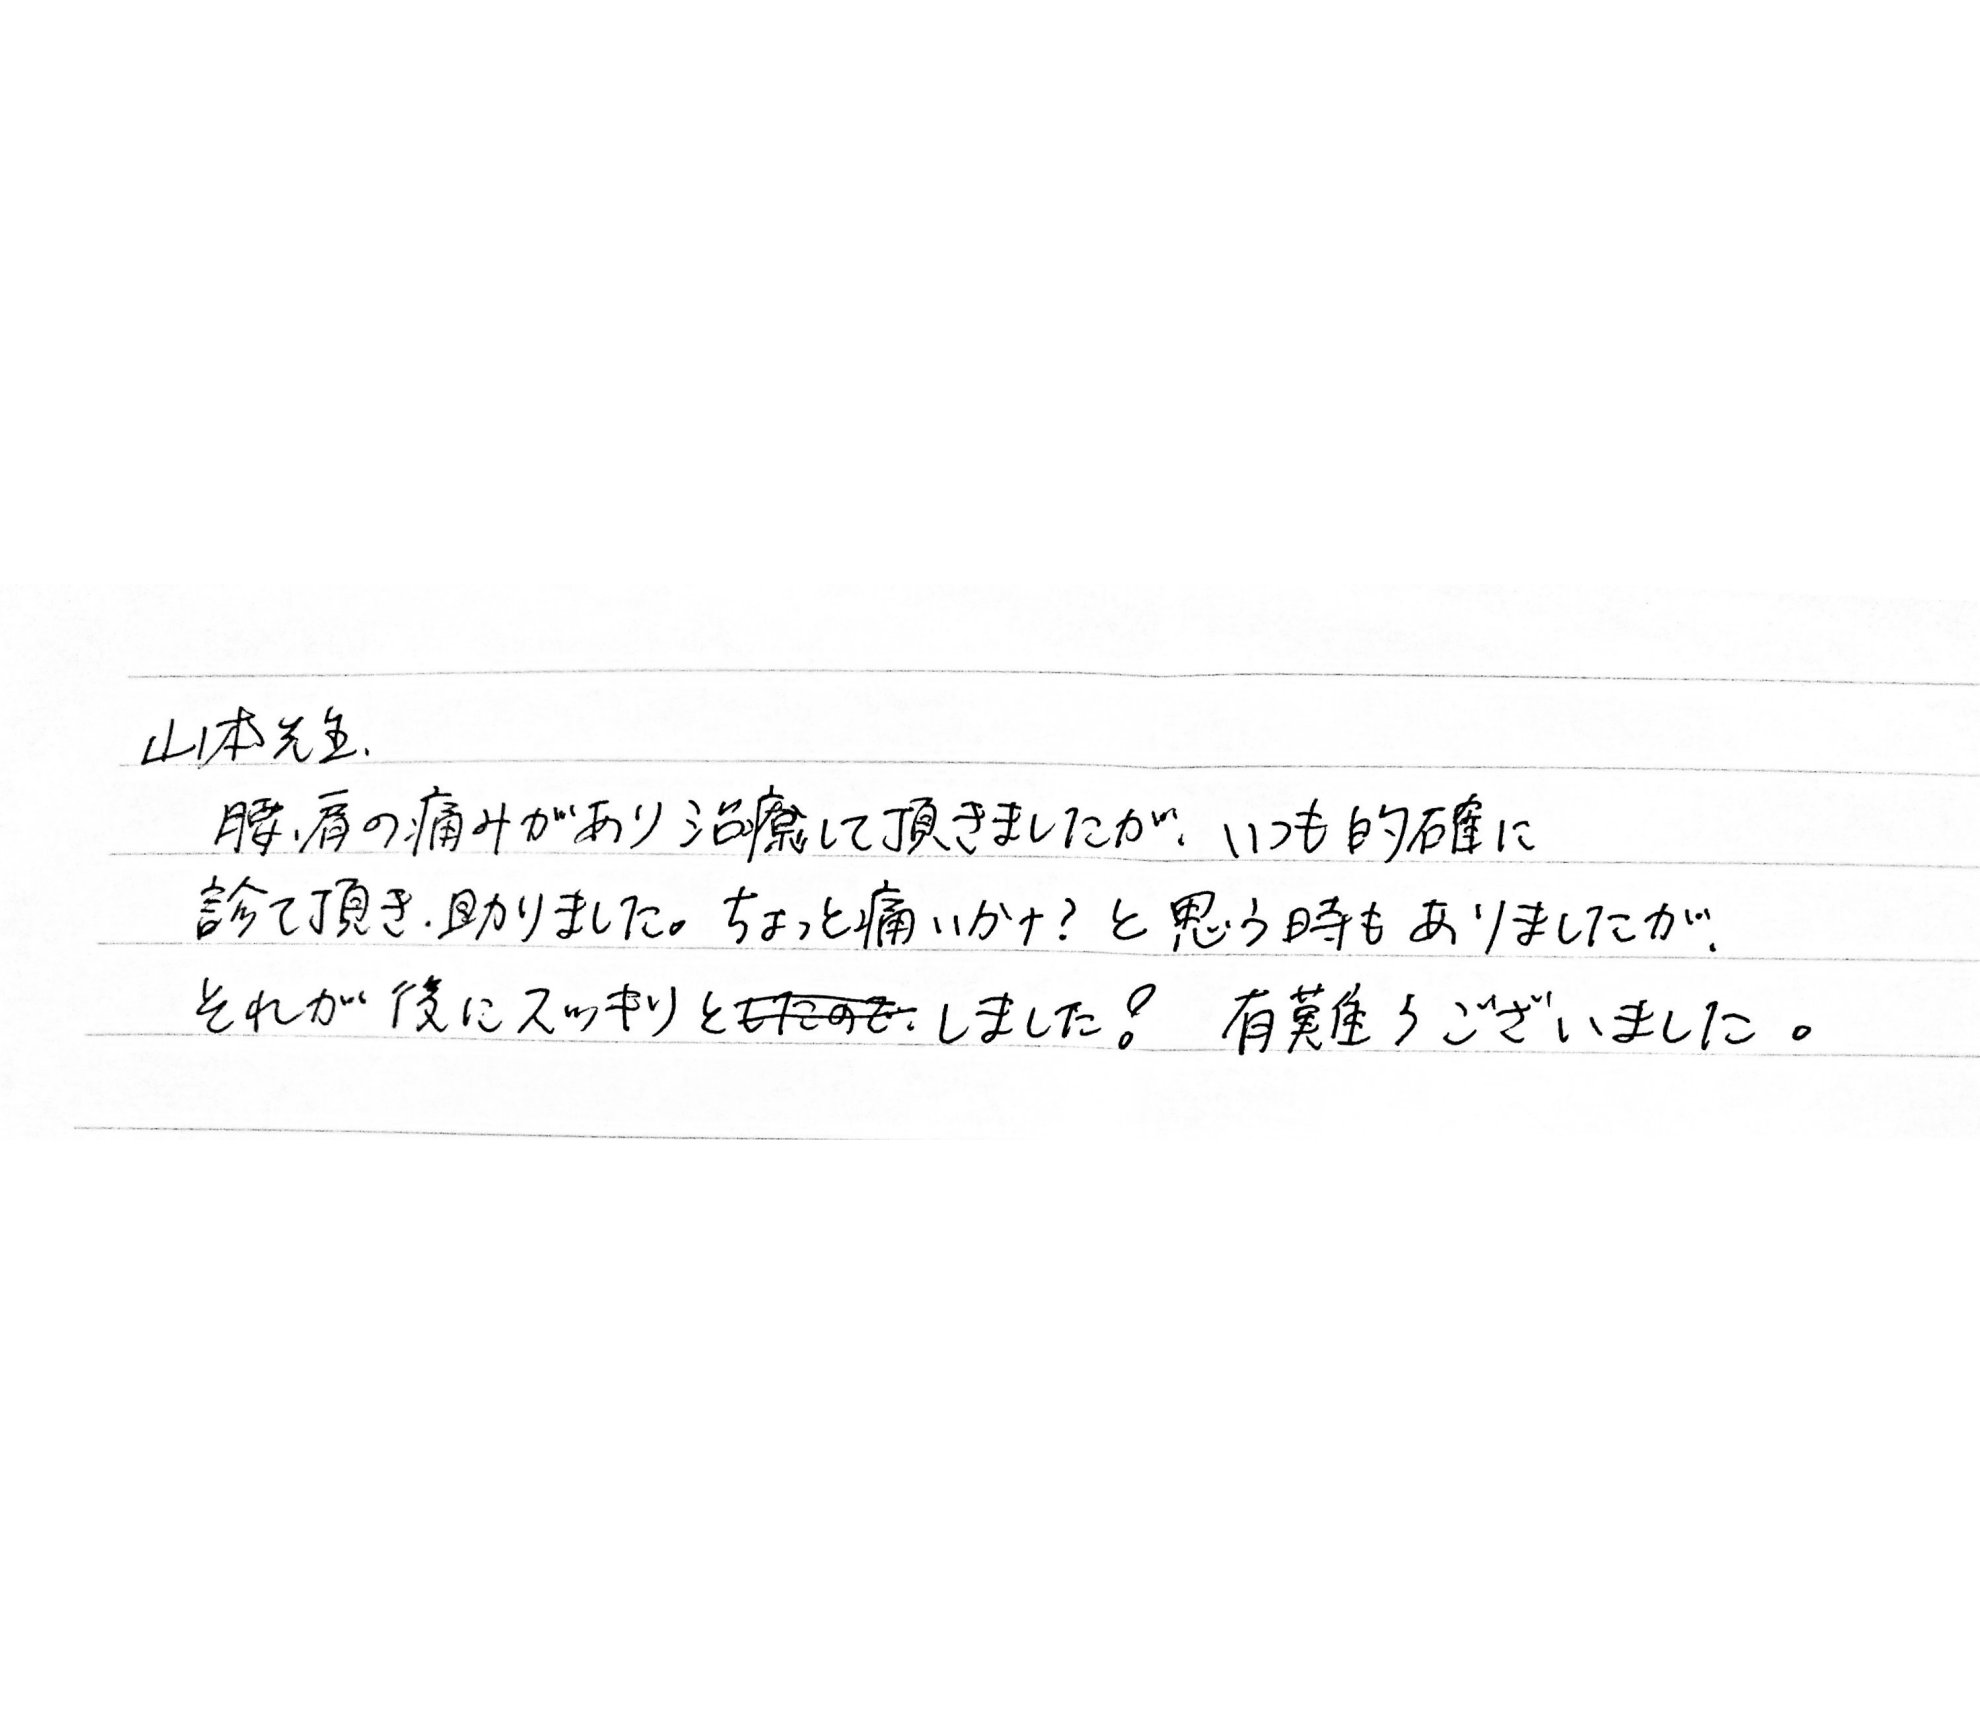 山本先生、
腰、肩の痛みがあり治療して頂きましたが、いつも的確に
診て頂き、助りました。ちょっと痛いかナ?と思う時もありましたが、
それが後にスッキリとしました! 有難うございました。